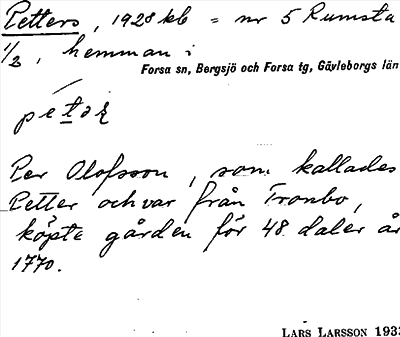 Petters, 1928 kb = nr 5 Rumsta
1/2, hemman i
Forsa sn, Bergsjö och Forsa tg, Gävleborgs län
Per Olofsson, som kallades
Petter och var från Tronbo,
köpte gården för 48 daler år
1770.
LARS LARSSON 1933